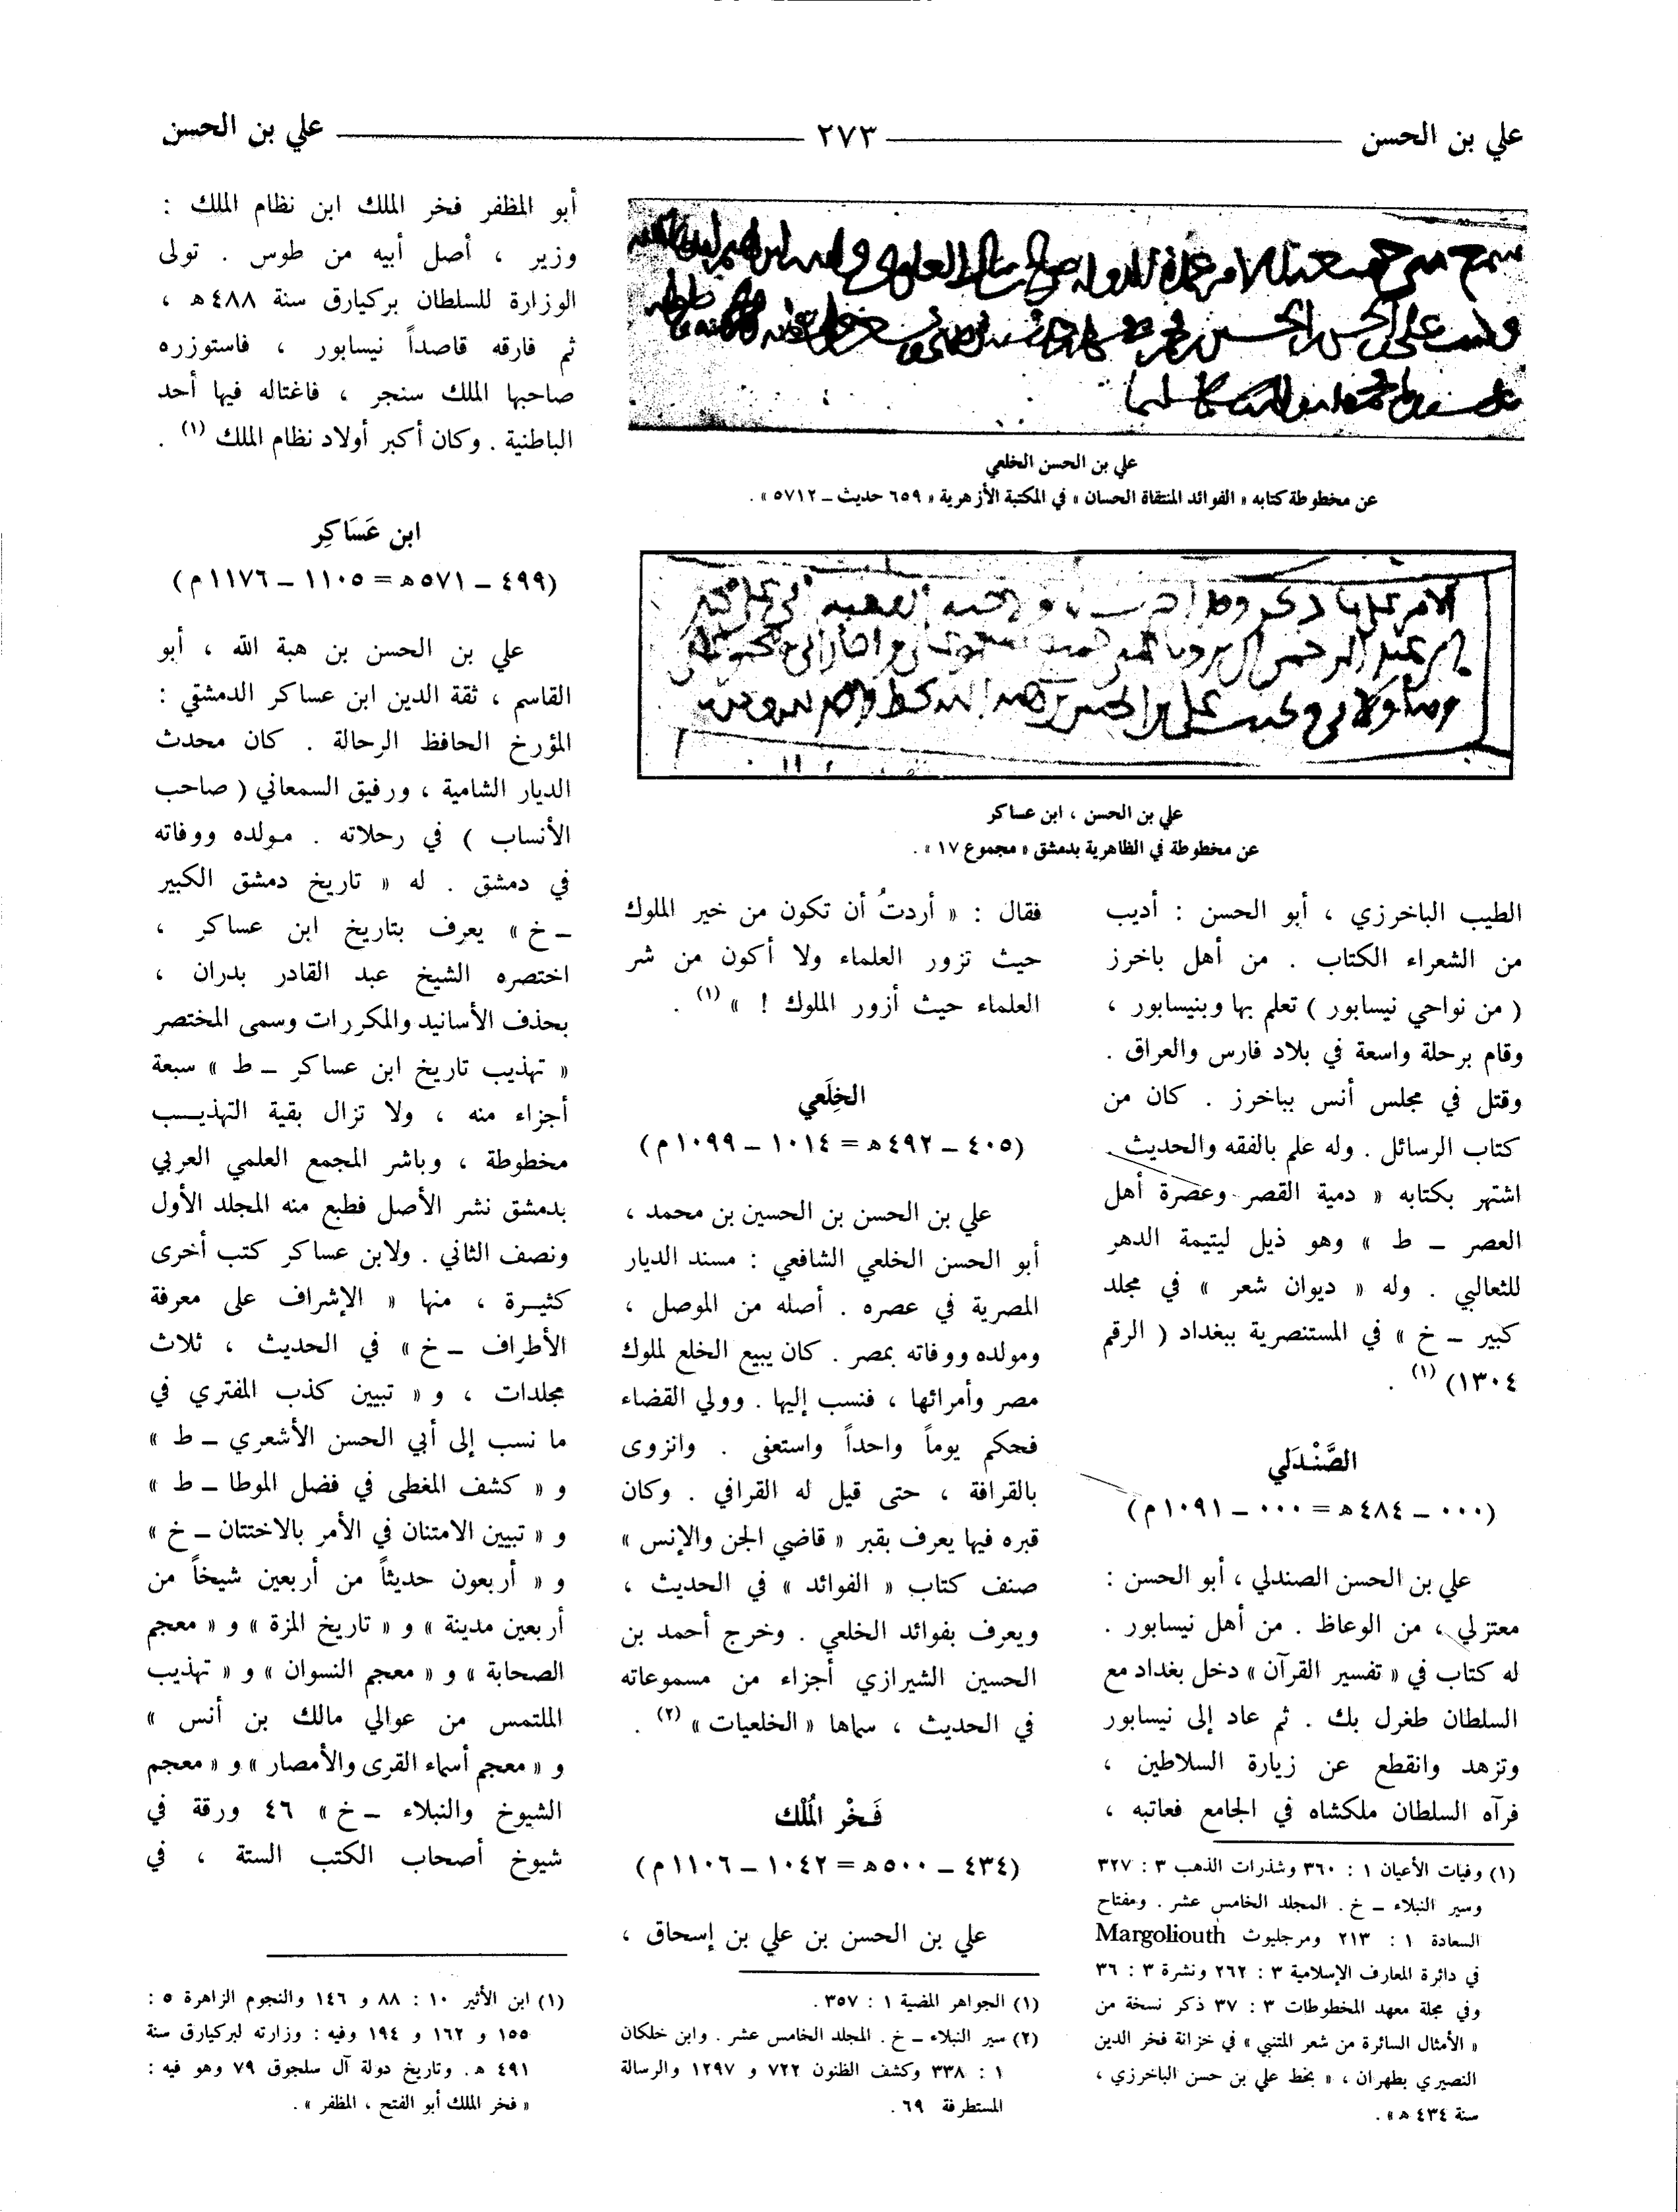 علي بن الحسن ٢٧٣ علي بن الحسن
علي بن الحسن الخلعي
عن مخطوطة كتابه « الفوائد المنتقاة الحسان » في المكتبة الأزهرية « ٦٥٩ حديث – ٥٧١٢ » .
علي بن الحسن ، ابن عساكر
عن مخطوطة في الظاهرية بدمشق « مجموع ١٧ » .
الطيب الباخرزي ، أبو الحسن : أديب
من الشعراء الكتاب . من أهل باخرز
( من نواحي نيسابور ) تعلم بها وبنيسابور ،
وقام برحلة واسعة في بلاد فارس والعراق .
وقتل في مجلس أنس بباخرز . كان من
كتاب الرسائل . وله علم بالفقه والحديث .
اشتهر بكتابه « دمية القصر وعصرة أهل
العصر – ط » وهو ذيل ليتيمة الدهر
للثعالبي . وله « ديوان شعر » في مجلد
كبير – خ » في المستنصرية ببغداد ( الرقم
١٣٠٤) (١) .
الصَّنْدَلي
(٠٠٠ – ٤٨٤ ھ = ٠٠٠ – ١٠٩١ م)
علي بن الحسن الصندلي ، أبو الحسن :
معتزلي ، من الوعاظ . من أهل نيسابور .
له كتاب في « تفسير القرآن » دخل بغداد مع
السلطان طغرل بك . ثم عاد إلى نيسابور
وتزهد وانقطع عن زيارة السلاطين ،
فرآه السلطان ملكشاه في الجامع فعاتبه ،
(١) وفيات الأعيان ١ : ٣٦٠ وشذرات الذهب ٣ : ٣٢٧
وسير النبلاء – خ . المجلد الخامس عشر . ومفتاح
السعادة ١ : ٢١٣ ومرجليوث Margoliouth
في دائرة المعارف الإسلامية ٣ : ٢٦٢ ونشرة ٣ : ٣٦
وفي مجلة معهد المخطوطات ٣ : ٣٧ ذكر نسخة من
« الأمثال السائرة من شعر المتنبي » في خزانة فخر الدين
النصيري بطهران ، « بخط علي بن حسن الباخرزي ،
سنة ٤٣٤ ھ » .
فقال : « أردتُ أن تكون من خير الملوك
حيث تزور العلماء ولا أكون من شر
العلماء حيث أزور الملوك ! » (١) .
الخِلَعي
(٤٠٥ – ٤٩٢ ھ = ١٠١٤ – ١٠٩٩ م)
علي بن الحسن بن الحسين بن محمد ،
أبو الحسن الخلعي الشافعي : مسند الديار
المصرية في عصره . أصله من الموصل ،
ومولده ووفاته بمصر . كان يبيع الخلع لملوك
مصر وأمرائها ، فنسب إليها . وولي القضاء
فحكم يوماً واحداً واستعفى . وانزوى
بالقرافة ، حتى قيل له القرافي . وكان
قبره فيها يعرف بقبر « قاضي الجن والإنس »
صنف كتاب « الفوائد » في الحديث ،
ويعرف بفوائد الخلعي . وخرج أحمد بن
الحسين الشيرازي أجزاء من مسموعاته
في الحديث ، سماها « الخلعيات » (٢) .
فَخْر المُلْك
(٤٣٤ – ٥٠٠ ھ = ١٠٤٢ – ١١٠٦ م)
علي بن الحسن بن علي بن إسحاق ،
(١) الجواهر المضية ١ : ٣٥٧ .
(٢) سير النبلاء – خ . المجلد الخامس عشر . وابن خلكان
١ : ٣٣٨ وكشف الظنون ٧٢٢ و ١٢٩٧ والرسالة
المستطرفة ٦٩ .
أبو المظفر فخر الملك ابن نظام الملك :
وزير ، أصل أبيه من طوس . تولى
الوزارة للسلطان بركيارق سنة ٤٨٨ ھ ،
ثم فارقه قاصداً نيسابور ، فاستوزره
صاحبها الملك سنجر ، فاغتاله فيها أحد
الباطنية . وكان أكبر أولاد نظام الملك (١) .
ابن عَسَاكِر
(٤٩٩ – ٥٧١ ھ = ١١٠٥ – ١١٧٦ م)
علي بن الحسن بن هبة الله ، أبو
القاسم ، ثقة الدين ابن عساكر الدمشقي :
المؤرخ الحافظ الرحالة . كان محدث
الديار الشامية ، ورفيق السمعاني ( صاحب
الأنساب ) في رحلاته . مولده ووفاته
في دمشق . له « تاريخ دمشق الكبير
– خ » يعرف بتاريخ ابن عساكر ،
اختصره الشيخ عبد القادر بدران ،
بحذف الأسانيد والمكررات وسمى المختصر
« تهذيب تاريخ ابن عساكر – ط » سبعة
أجزاء منه ، ولا تزال بقية التهذيب
مخطوطة ، وباشر المجمع العلمي العربي
بدمشق نشر الأصل فطبع منه المجلد الأول
ونصف الثاني . ولابن عساكر كتب أخرى
كثيرة ، منها « الإشراف على معرفة
الأطراف – خ » في الحديث ، ثلاث
مجلدات ، و « تبيين كذب المفتري في
ما نسب إلى أبي الحسن الأشعري – ط »
و « كشف المغطى في فضل الموطا – ط »
و « تبيين الامتنان في الأمر بالاختتان – خ »
و « أربعون حديثاً من أربعين شيخاً من
أربعين مدينة » و « تاريخ المزة » و « معجم
الصحابة » و « معجم النسوان » و « تهذيب
الملتمس من عوالي مالك بن أنس »
و « معجم أسماء القرى والأمصار » و « معجم
الشيوخ والنبلاء – خ » ٤٦ ورقة في
شيوخ أصحاب الكتب الستة ، في
(١) ابن الأثير ١٠ : ٨٨ و ١٤٦ والنجوم الزاهرة ٥ :
١٥٥ و ١٦٢ و ١٩٤ وفيه : وزارته لبركيارق سنة
٤٩١ ھ . وتاريخ دولة آل سلجوق ٧٩ وهو فيه :
« فخر الملك أبو الفتح ، المظفر » .